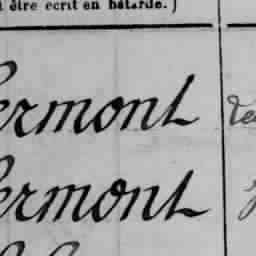 être écrit en bâtarde.)
ermont
ermont